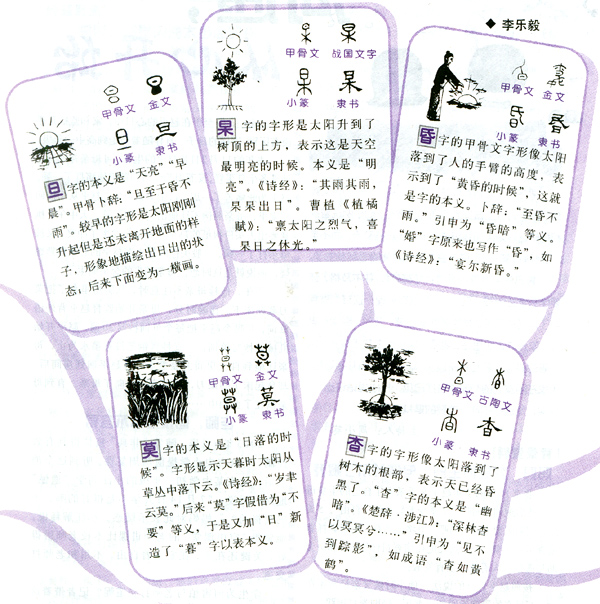 ◆ 李乐毅
甲骨文 金文
小篆 隶书
旦字的本义是“天亮”“早
晨”。甲骨卜辞：“旦至于昏不
雨”。较早的字形是太阳刚刚
升起但是还未离开地面的样
子，形象地描绘出日出的状
态；后来下面变为一横画。
甲骨文 战国文字
小篆 隶书
杲字的字形是太阳升到了
树顶的上方，表示这是天空
最明亮的时候。本义是“明
亮”。《诗经》：“其雨其雨，
杲杲出日”。曹植《植橘
赋》：“禀太阳之烈气，喜
杲日之休光。”
甲骨文 金文
小篆 隶书
昏字的甲骨文字形像太阳
落到了人的手臂的高度，表
示到了“黄昏的时候”，这就
是字的本义。卜辞：“至昏不
雨。”引申为“昏暗”等义。
“婚”字原来也写作“昏”，如
《诗经》：“宴尔新昏。”
甲骨文 金文
小篆 隶书
莫字的本义是“日落的时
候”。字形显示天暮时太阳从
草丛中落下云。《诗经》：“岁聿
云莫。”后来“莫”字假借为“不
要”等义，于是又加“日”新
造了“暮”字以表本义。
甲骨文 古陶文
小篆 隶书
杳字的字形像太阳落到了
树木的根部，表示天已经昏
黑了。“杳”字的本义是“幽
暗”。《楚辞·涉江》：“深林杳
以冥冥兮……”引申为“见不
到踪影”，如成语“杳如黄
鹤”。